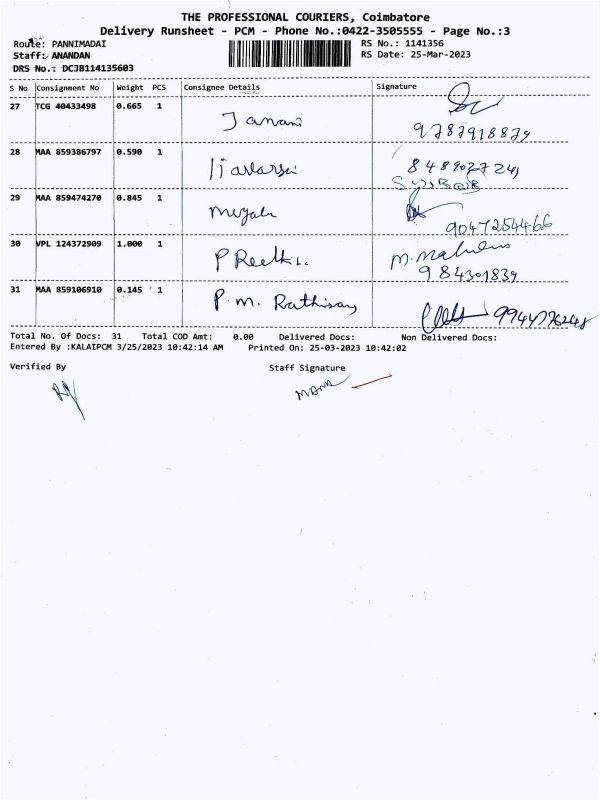 THE PROFESSIONAL COURIERS, Coimbatore
Delivery Runsheet - PCM - Phone No.:0422-3505555 - Page No.:3
Route: PANNIMADAI
RS No.: 1141356
Staff: ANANDAN
RS Date: 25-Mar-2023
DRS No.: DCJB114135603
S No Consignment No Weight PCS Consignee Details Signature
27 TCG 40433498 0.665 1 Janani
9787918879
28 MAA 859386797 0.590 1
29 MAA 859474270 0.845 1 Megala
9047254466
30 VPL 124372909 1.000 1 P Reethi.
31 MAA 859106910 0.145 1 P. M. Rathisam
Total No. Of Docs: 31 Total COD Amt: 0.00 Delivered Docs: Non Delivered Docs:
Entered By :KALAIPCM 3/25/2023 10:42:14 AM Printed On: 25-03-2023 10:42:02
Verified By Staff Signature